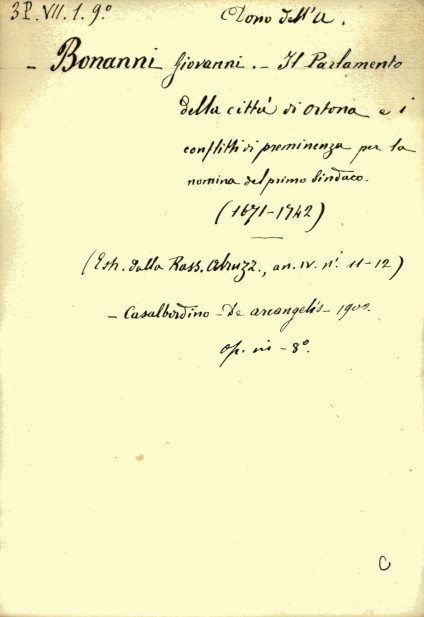 3P. VII. 1. 9.º
Dono dell'A.
- Bonanni Giovanni. - Il Parlamento
della città di Ortona e i
conflitti di preminenza per la
nomina del primo Sindaco.
(1671-1742)
(Estr. dalla Rass. Abruzz., an. IV. nⁱ. 11-12)
- Casalbordino - De arcangelis - 1900.
op. in - 8º.
C